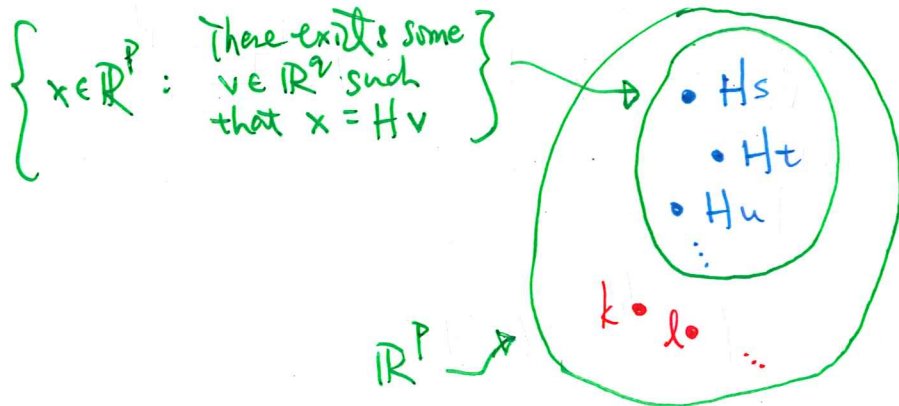 There exists some
{ x ∈ ℝ^p : v ∈ ℝ^q such }
that x = Hv
• Hs
• Ht
• Hu
⋱
k •
l •
⋱
ℝ^p